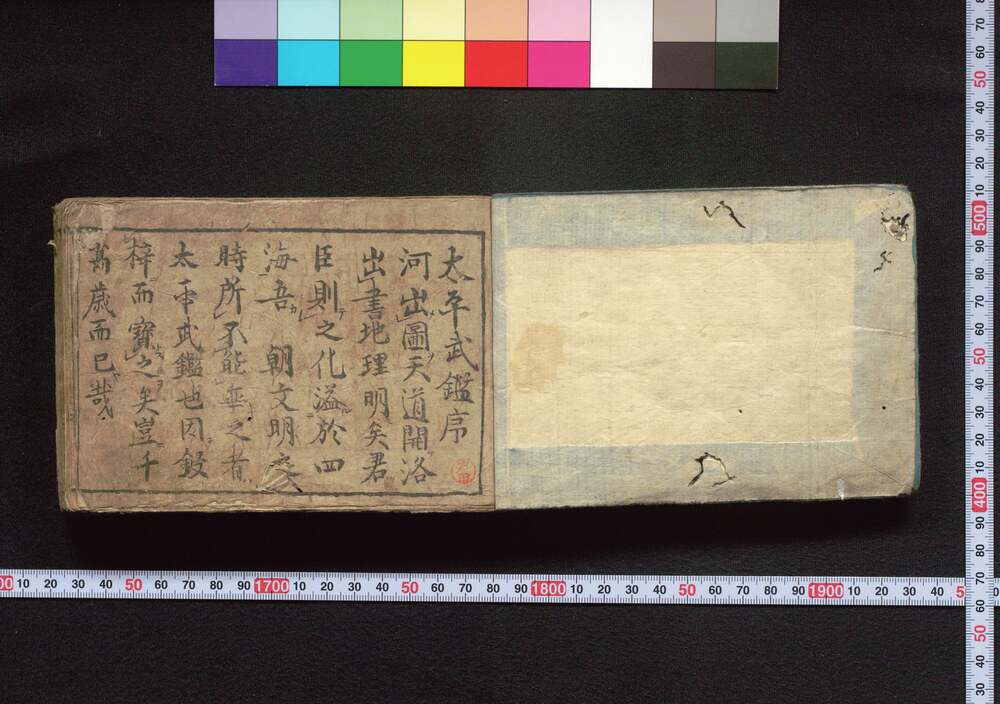 太平武鑑序
河出圖天道開洛
出書地理明矣君
臣則之化溢於四
海吾 朝文明之
時所不能無之者
太平武鑑也因鋟
梓而寶之矣豈千
萬歳而已哉
00 10 20 30 40 50 60 70 80 90 1700 10 20 30 40 50 60 70 80 90 1800 10 20 30 40 50 60 70 80 90 1900 10 20 30 40
70 60 50 40 30 20 10 500 90 80 70 60 50 40 30 20 10 400 90 80 70 60 50 40 30